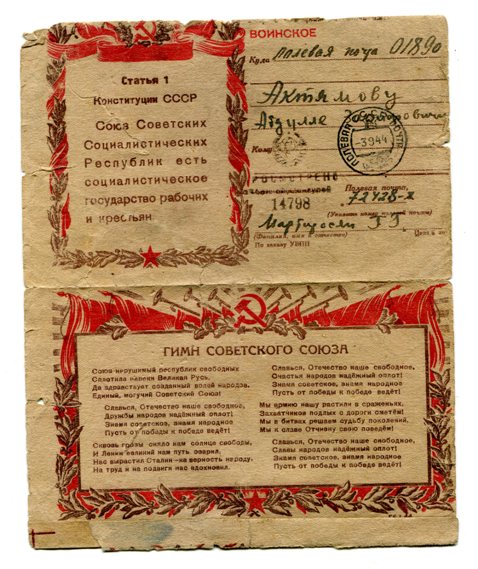 Статья 1
Конституции СССР
Союз Советских
Социалистических
Республик есть
социалистическое
государство рабочих
и крестьян.
ВОИНСКОЕ
Куда полевая поча 01890
Актямову
Абдулле
Кому
ПОЛЕВАЯ ПОЧТА
-3 9 44
ПРОСМОТРЕНО
14798
Полевая почта,
72428-ж
(Указать номер полевой почты)
(Фамилия, имя и отчество)
По заказу УВПП
Цена
ГИМН СОВЕТСКОГО СОЮЗА
Союз нерушимый республик свободных
Сплотила навеки Великая Русь.
Да здравствует созданный волей народов,
Единый, могучий Советский Союз!
Славься, Отечество наше свободное,
Дружбы народов надёжный оплот!
Знамя советское, знамя народное
Пусть от победы к победе ведёт!
Сквозь грозы сияло нам солнце свободы,
И Ленин великий нам путь озарил,
Нас вырастил Сталин—на верность народу,
На труд и на подвиги нас вдохновил.
Славься, Отечество наше свободное,
Счастья народов надёжный оплот!
Знамя советское, знамя народное
Пусть от победы к победе ведёт!
Мы армию нашу растили в сраженьях,
Захватчиков подлых с дороги сметём!
Мы в битвах решаем судьбу поколений,
Мы к славе Отчизну свою поведём!
Славься, Отечество наше свободное,
Славы народов надёжный оплот!
Знамя советское, знамя народное
Пусть от победы к победе ведёт!